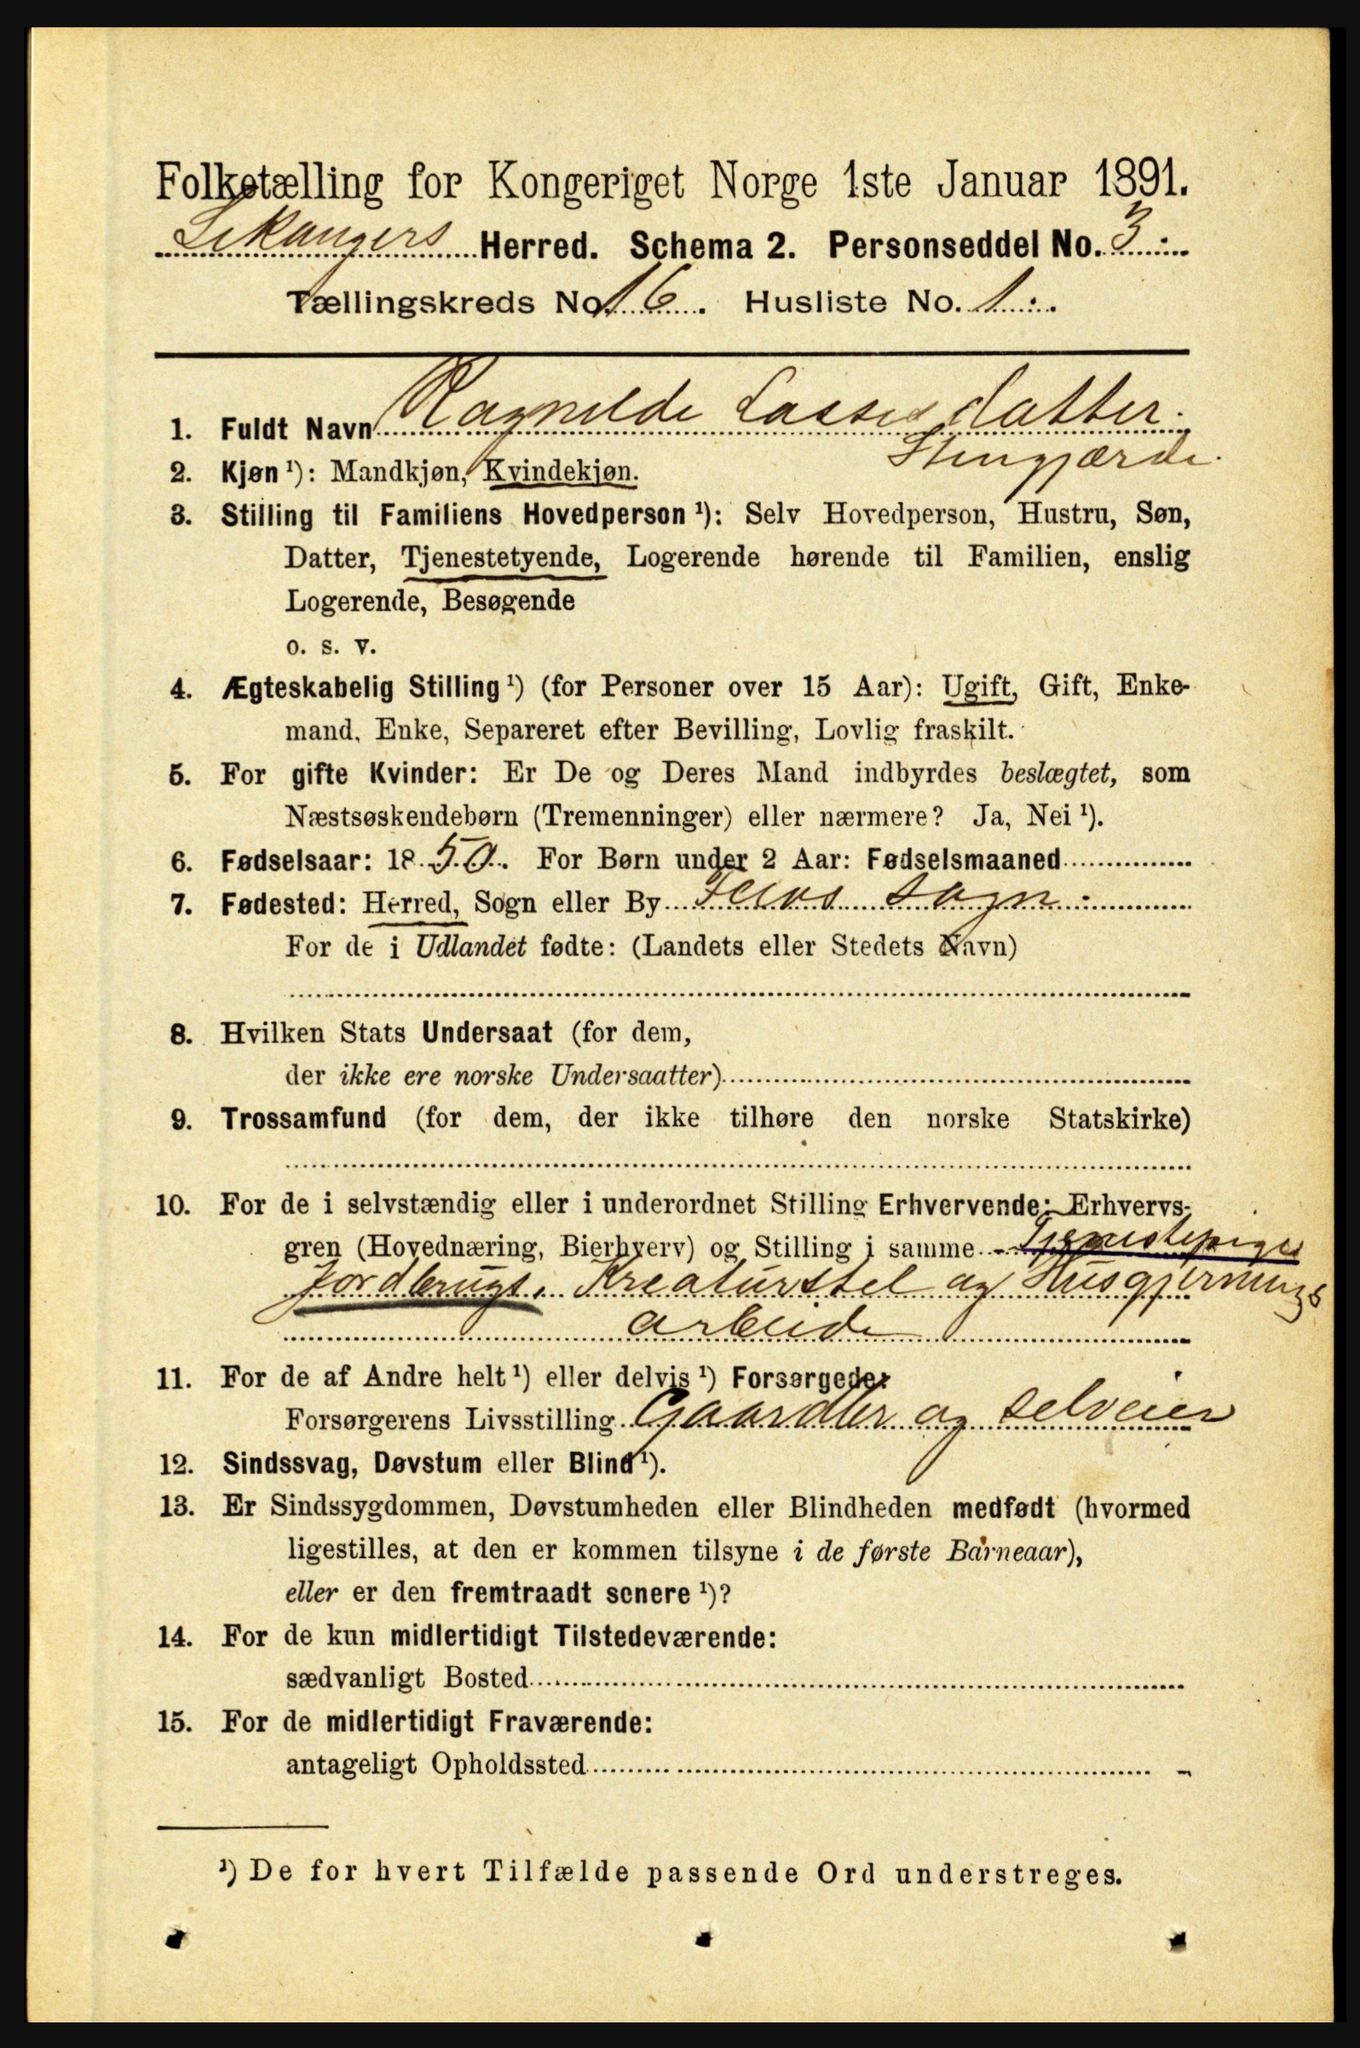 Folketælling for Kongeriget Norge 1ste Januar 1891.
Lekangers Herred. Schema 2. Personseddel No. 3.
Tællingskreds No. 16. Husliste No. 1.
1. Fuldt Navn Ragnilde Lassesdatter.
Stengjærde.
2. Kjøn ¹): Mandkjøn, Kvindekjøn.
3. Stilling til Familiens Hovedperson ¹): Selv Hovedperson, Hustru, Søn,
Datter, Tjenestetyende, Logerende hørende til Familien, enslig
Logerende, Besøgende
o. s. v.
4. Ægteskabelig Stilling ¹) (for Personer over 15 Aar): Ugift, Gift, Enke-
mand, Enke, Separeret efter Bevilling, Lovlig fraskilt.
5. For gifte Kvinder: Er De og Deres Mand indbyrdes beslægtet, som
Næstsøskendebørn (Tremenninger) eller nærmere? Ja, Nei ¹).
6. Fødselsaar: 1850. For Børn under 2 Aar: Fødselsmaaned
7. Fødested: Herred, Sogn eller By Feios Sogn.
For de i Udlandet fødte: (Landets eller Stedets Navn)
8. Hvilken Stats Undersaat (for dem,
der ikke ere norske Undersaatter)
9. Trossamfund (for dem, der ikke tilhøre den norske Statskirke)
10. For de i selvstændig eller i underordnet Stilling Erhvervende: Erhvervs-
gren (Hovednæring, Bierhverv) og Stilling i samme Tjenestepiges
Jordbrugs, Kreaturstel og Husgjernings
arbeide
11. For de af Andre helt ¹) eller delvis ¹) Forsørgede:
Forsørgerens Livsstilling Gaardbr og selveier
12. Sindssvag, Døvstum eller Blind ¹).
13. Er Sindssygdommen, Døvstumheden eller Blindheden medfødt (hvormed
ligestilles, at den er kommen tilsyne i de første Barneaar),
eller er den fremtraadt senere ¹)?
14. For de kun midlertidigt Tilstedeværende:
sædvanligt Bosted
15. For de midlertidigt Fraværende:
antageligt Opholdssted
¹) De for hvert Tilfælde passende Ord understreges.